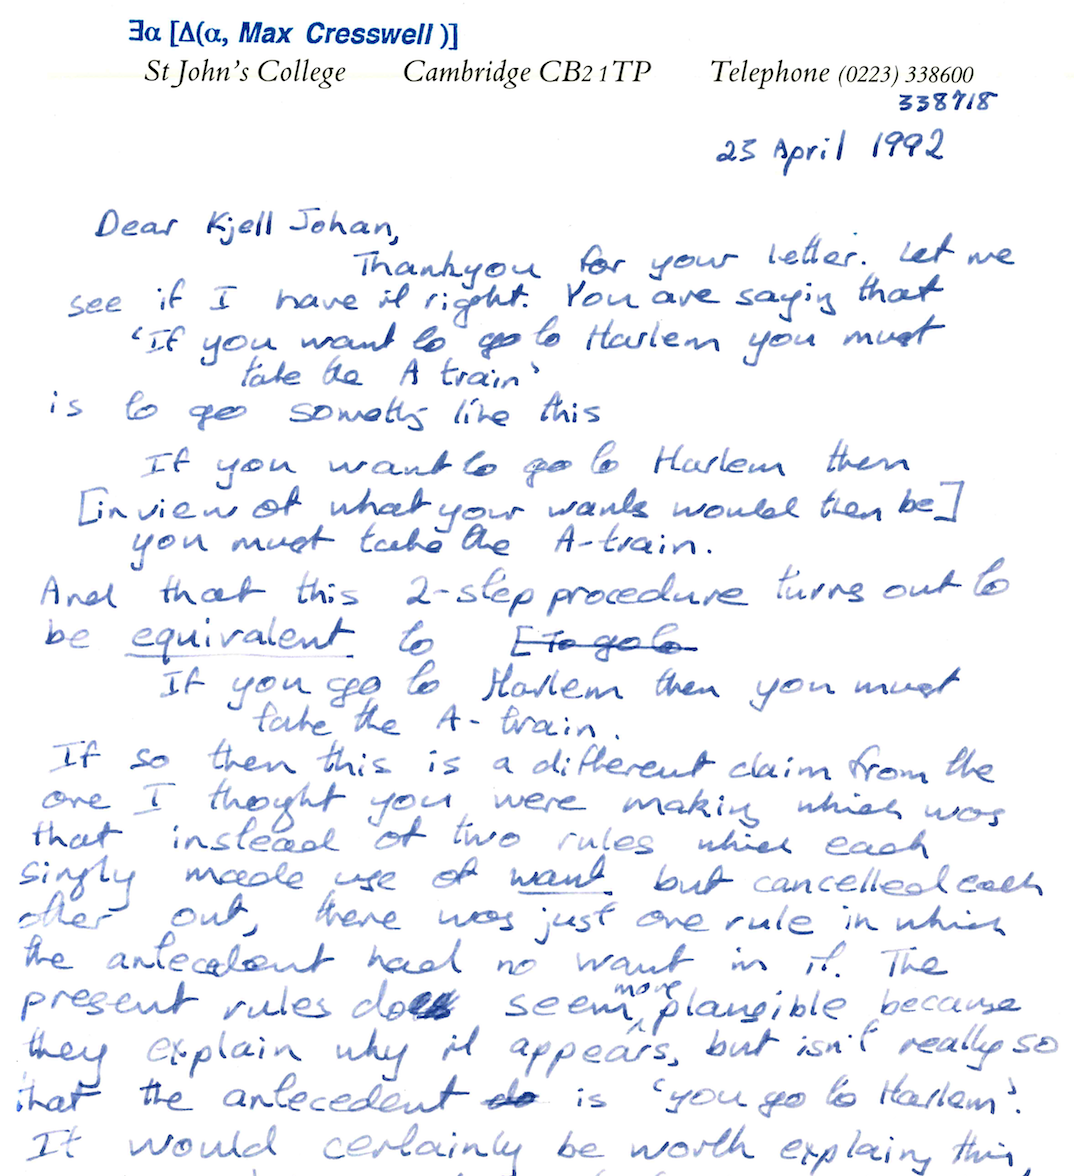 ∃α [Δ(α, Max Cresswell )]
St John's College Cambridge CB2 1TP Telephone (0223) 338600
338718
23 April 1992
Dear Kjell Johan,
Thankyou for your letter. Let me
see if I have it right. You are saying that
'If you want to go to Harlem you must
take the A train'
is to go something like this
If you want to go to Harlem then
[in view of what your wants would then be]
you must take the A-train.
And that this 2-step procedure turns out to
be equivalent to [To go to
If you go to Harlem then you must
take the A-train.
If so then this is a different claim from the
one I thoght you were making which was
that instead of two rules which each
singly made use of want but cancelled each
other out, there was just one rule in which
the antecedent had no want in it. The
present rules do seem more plausible because
they explain why it appears, but isn't really so
that the antecedent do is 'you go to Harlem'.
It would certainly be worth explaing this,